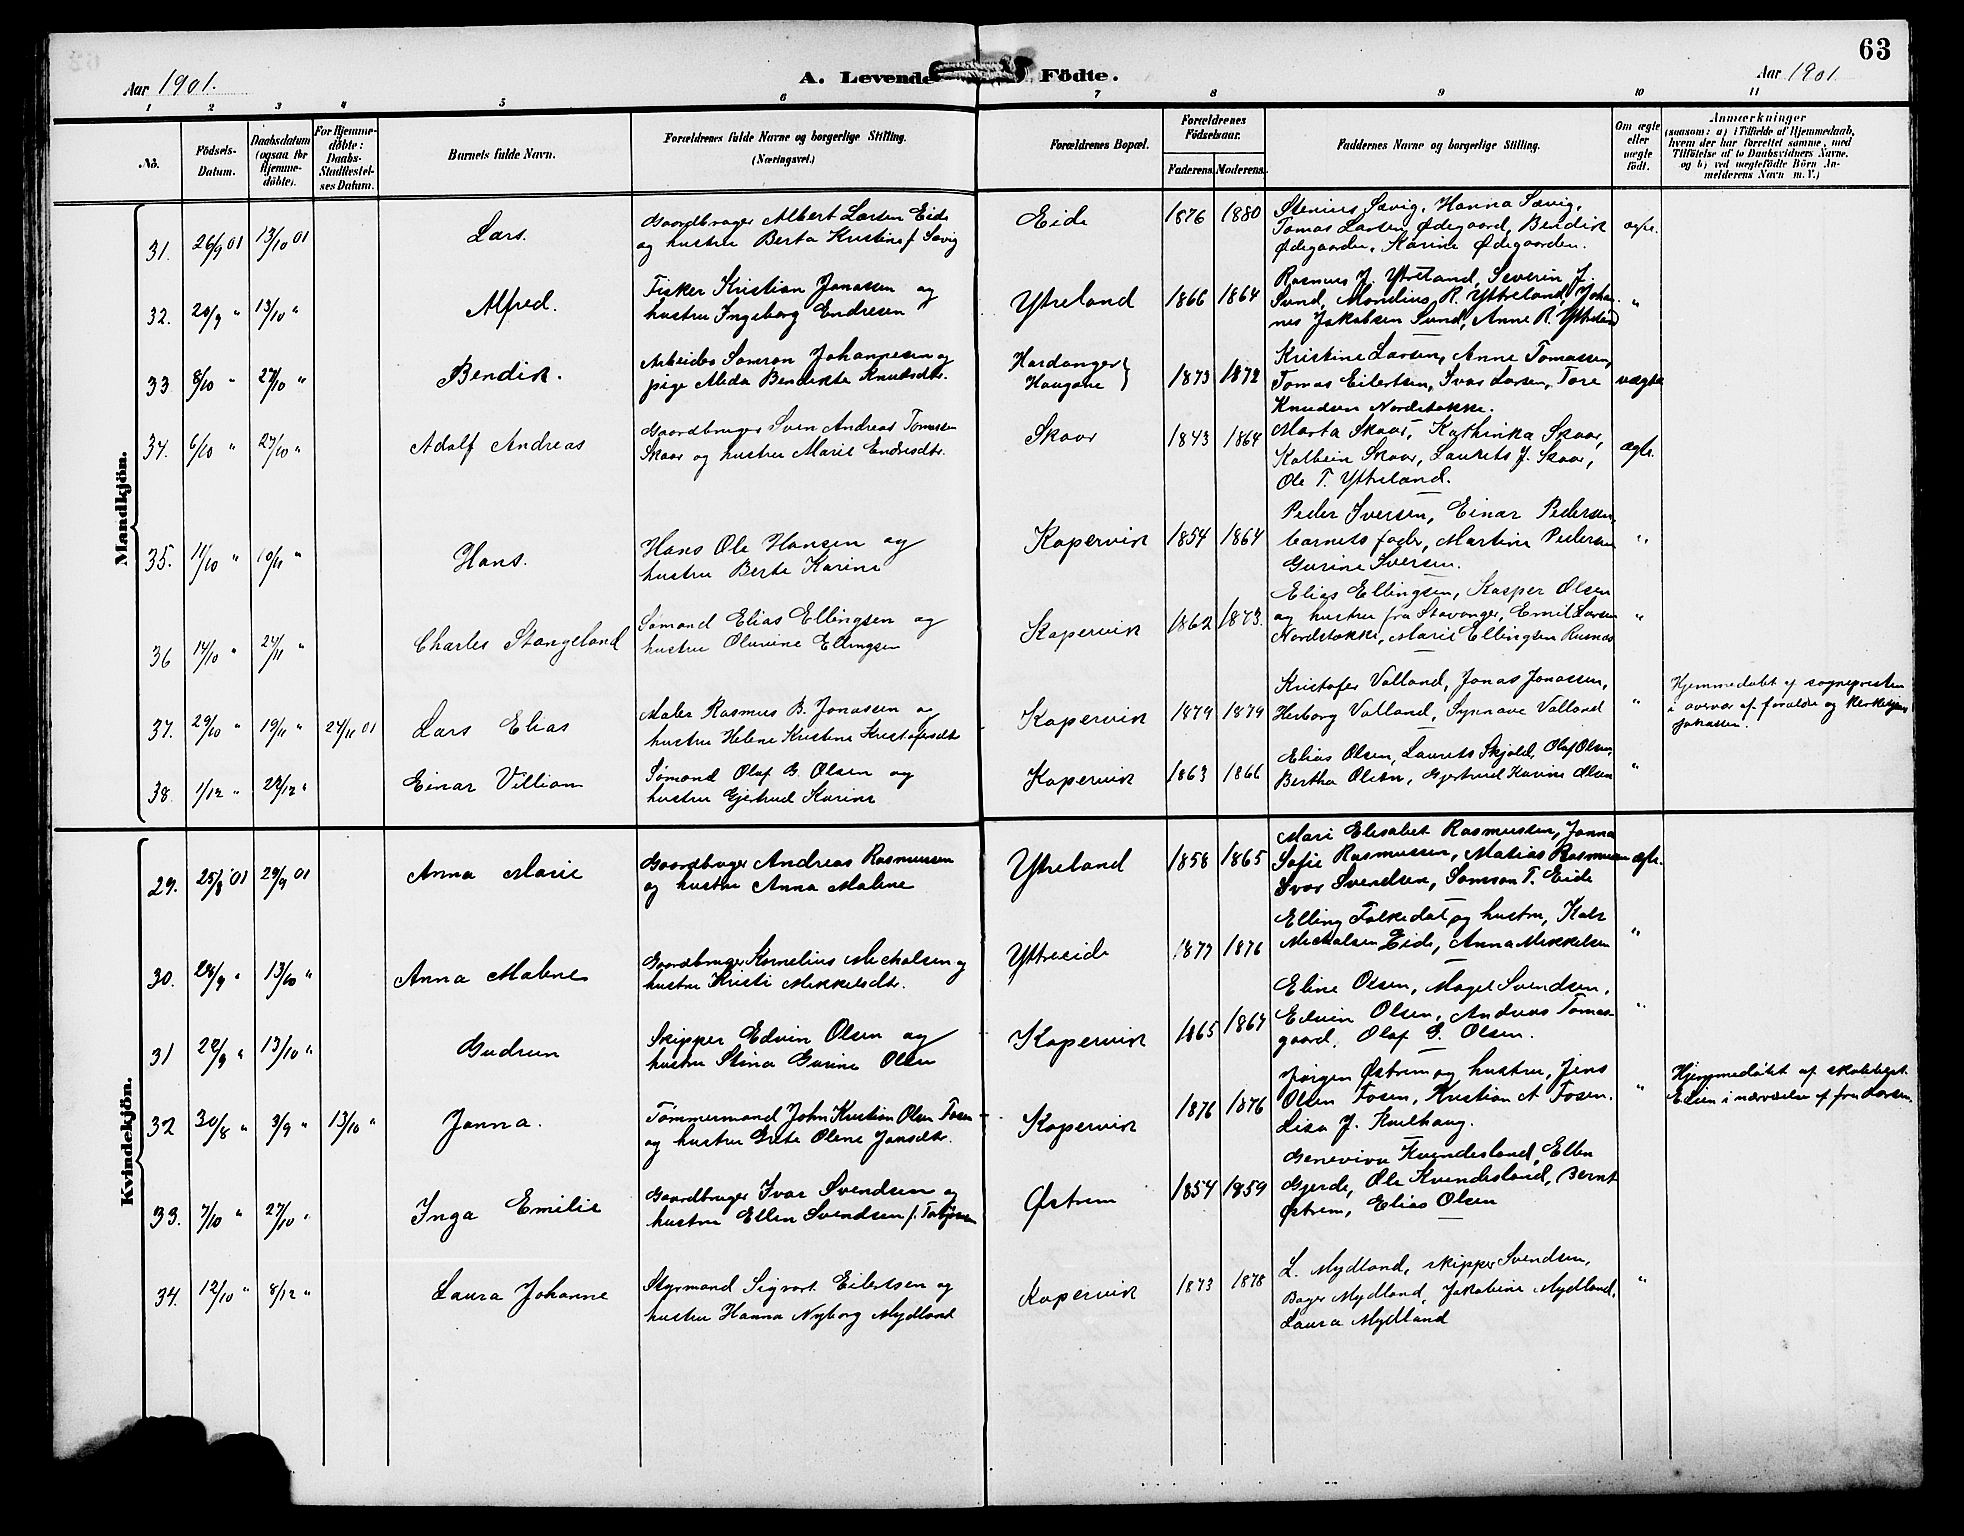 63
Aar 1901.
A. Levende Födte.
Aar 1901
1 2 3 4 5 6 7 8 9 10 11
No.
Födsels-
Datum.
Daabsdatum
(ogsaa for
Hjemme-
döbte).
For Hjemme-
döbte:
Daabs-
Stadfæstel-
ses Datum.
Barnets fulde Navn.
Forældrenes fulde Navne og borgerlige Stilling.
(Næringsvei.)
Forældrenes Bopæl.
Forældrenes
Födselsaar.
Faderens.
Moderens.
Faddernes Navne og borgerlige Stilling.
Om ægte
eller
uægte
födt.
Anmærkninger
(saasom: a) i Tilfælde af Hjemmedaab,
hvem der har forrettet samme, med
Tilföielse af to Daabsvidners Navne,
og b) ved uægtefödte Börn An-
melderens Navn m. V.)
Mandkjön.
31. 26/9 01 13/10 01 Lars.
Gaardbruger Albert Larsen Eide
og hustru Berta Kristine f. Sævig
Eide 1876 1880
Stenius Sævig, Hanna Sævig,
Tomas Larsen Ødegaard, Bendik
Ødegaarden, Karine Ødegaarden.
ægte.
32. 20/9 " 13/10 " Alfred.
Fisker Kristian Jonassen og
hustru Ingeborg Endresen
Ytreland 1866 1864
Rasmus J. Ytreland, Severin J.
Sund, Mondius R. Ytreland, Johan-
nes Jakobsen Sund, Anne R. Ytreland
"
33 8/10 " 27/10 " Bendik.
Arbeider Samson Johannesen og
pige Alida Bendikte Knutsdtr.
Hardanger
Haugane
1873 1872
Kristine Larsen, Anne Tomassen,
Tomas Eilertsen, Ivar Larsen, Tore
Knudsen Nordstokke.
uægte
34. 6/10 " 27/10 " Adolf Andreas
Gaardbruger Sven Andreas Tomassen
Skaar og hustru Marie Endresdtr.
Skaar 1843 1864
Marta Skaar, Kathinka Skaar,
Kolbein Skaar, Laurits J. Skaar,
Ole T. Ytreland.
ægte.
35. 11/10 " 10/11 " Hans.
Hans Ole Hansen og
hustru Berte Karine
Kopervik 1854 1864
Peder Iversen, Einar Pedersen,
barnets fader, Martine Pedersen
Gurine Iversen.
"
36 14/10 " 24/11 " Charles Stangeland
Sømand Elias Ellingsen og
hustru Oluvine Ellingsen
Kopervik 1862 1873.
Elias Ellingsen, Kasper Olsen
og hustru fra Stavanger, Emil Larsen
Nordstokke, Marie Ellingsen Rusnes
"
37. 29/10 " 19/11 " 24/11 01 Lars Elias
Maler Rasmus B. Jonassen og
hustru Helene Kristine Kristofersdtr
Kopervik 1879 1879
Kristofer Valland, Jonas Jonassen,
Herborg Valland, Synnøve Valland
"
Hjemmedøbt af sognepresten
i overvær af forældre og
38. 1/12 " 22/12 " Einar Villiam
Sømand Olaf G. Olsen og
hustru Gjertrud Karine
Kopervik 1863 1866
Elias Olsen, Laurits Skjold, Olaf Olsen,
Bertha Olsen, Gjertrud Karine Olsen
"
Kvindekjön.
29. 25/8 01 29/9 01 Anna Marie
Gaardbruger Andreas Rasmussen
og hustru Anna Malene
Ytreland 1858 1865
Mari Elisabet Rasmussen, Janna
Sofie Rasmussen, Matias Rasmussen
Ivar Svendsen, Samson T. Eide
ægte.
30. 28/9 " 13/10 " Anna Malene
Gaardbruger Kornelius Mickalsen og
hustru Kristi Mikkelsdtr.
Ytreeide 1877 1876
Elling Falkedal og hustru, Kals
Mickalsen Eide, Anna Mikkelsen
"
31 22/9 " 13/10 " Gudrun
Skipper Edvin Olsen og
hustru Stina Gurine Olsen
Kopervik 1865 1867
Eline Olsen, Magel Svendsen,
Edvin Olsen, Andreas Tomas
gaard, Olaf G. Olsen.
"
32 30/8 " 3/9 " 13/10 " Janna.
Tømmermand John Kristian Olsen Fosen
og hustru Grete Olene Jansdtr.
Kopervik 1876 1876
Jørgen Østrem og hustru, Jens
Olsen Fosen, Kristian A Fosen.
Lisa J. Kvelhaug.
"
Hjemmedøbt af skolebest.
Edsen i nærværelse af fru Larsen.
33. 7/10 " 27/10 " Inga Emilie
Gaardbruger Ivar Svendsen og
hustru Ellen Svendsen f.
Østrem 1854 1859
Genevive Kvendesland, Ellen
Gjerde, Ole Kvendesland, Bernt
Østrem, Elias Olsen
34. 12/10 " 8/12 " Laura Johanne
Styrmand Sigvart Eilertsen og
hustru Hanna Nyborg Mydland
Kopervik 1873 1878
L. Mydland, skipper Svendsen,
Bager Mydland, Jakobine Mydland,
Laura Mydland
"